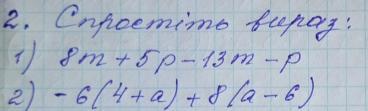 2. Спростіть вираз:
1) 8m + 5p - 13m - p
2) - 6(4+a) + 8(a-6)